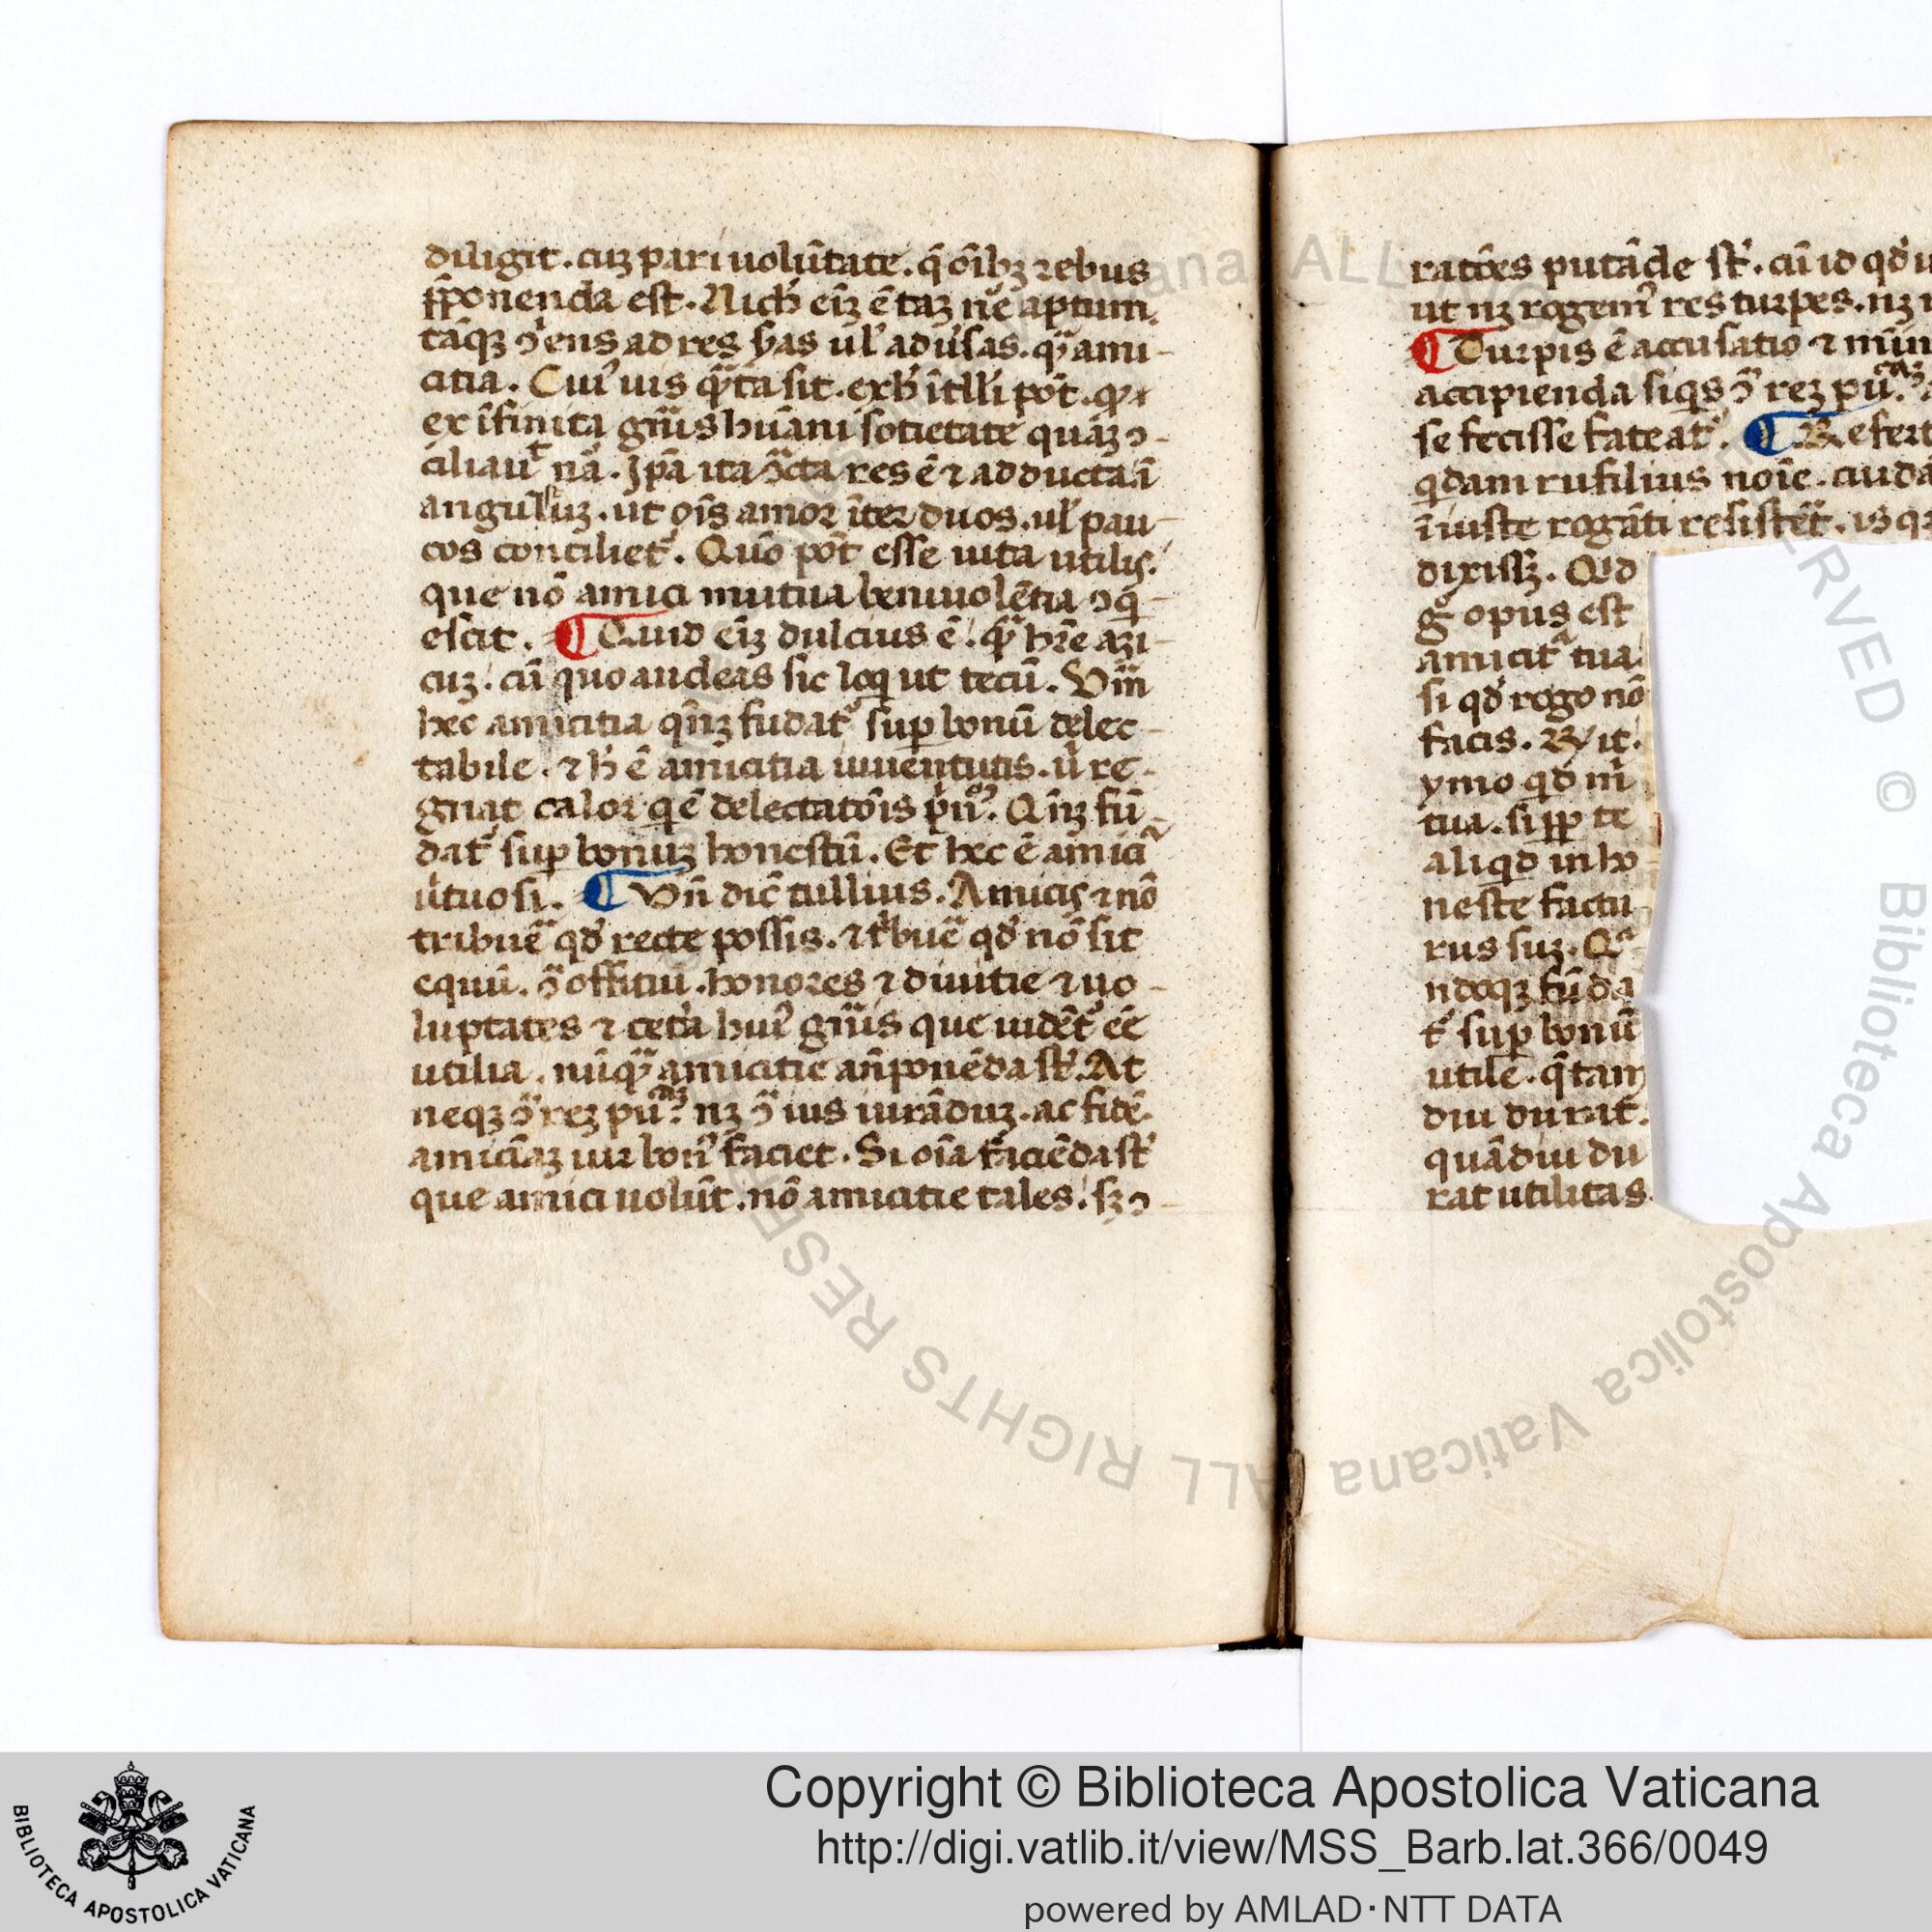 diligit. cuz pari uolũtate. q̃ oĩbꝫ rebus
p̃ponenda est. Nich̃ eiꝫ ẽ taꝫ nẽ aptum.
tãqꝫ ꝯ̃ens ad res s̃as ul̃ adũsas. q̃ ami-
citia. Cuiꝰ uis q̃ta sit. ex h̃ ĩtll̃i põt. qꝛ
ex ĩfinita gñis hũani sotietate quaꝫ ꝯ-
ciliauᵗ nã. Ip̃a ita ꝯ̃cta res ẽ ⁊ adducta ĩ
angustuꝫ. ut oĩs amor ĩter duos. ul̃ pau-
cos concilietᷣ. Quõ põt esse uita utilis.
que nõ amici mutua beniuolẽtia ꝯq̃-
escit. ¶ Quid eiꝫ dulcius ẽ. q̃ hr̃e ami-
cuꝫ. cũ quo audeas sic loq̃ ut tecũ. Uñ
hec amicitia qñꝫ fũdatᷣ suꝑ bonũ delec-
tabile. ⁊ h̃ ẽ amicitia iuuentutis. ũ re-
gnat calor q̃ ẽ delectatõis p̃nᵐ. Qñꝫ fũ-
datᷣ suꝑ bonuꝫ honestũ. Et hec ẽ amicᵃ
ũtuosi. ¶ Vñ dic̃ tullius. Amicis ⁊ nõ
tribuẽ qd̃ recte possis. ⁊ tⁱbuẽ qd̃ nõ sit
equũ. ꝯ̃ offitiũ. honores ⁊ diuitie ⁊ uo-
luptates ⁊ cet̃a huiꝰ gñis que uidẽtᷣ eẽ
utilia. nũq̃ amicitie añponẽda st̃. At
neqꝫ ꝯ̃ rez puᶜᵃᶻ. nꝫ ꝯ̃ ius iurãduꝫ. ac fidẽ.
amicĩaꝫ uir bonꝰ faciet. Si oĩa faciẽda st̃
que amici uolũt. nõ amicitie tales. sꝫ ꝯ-
ratões putãde st̃. cũ id qd̃
ut nꝫ rogemꝰ res turpes. nꝫ
¶ Turpis ẽ accusatio ⁊
accipienda siq̃s ꝯ̃ rez puᶜᵃᶻ.
se fecisse fateatᷣ. ¶ Refert
q̃dam rufilius noĩe. cuidã
ĩiuste rogãti resistẽt. is
dixissꝫ. Qⁱd
gͦ opus est
amicitᵃ tua.
si qd̃ rogo nõ
facis. R̃dit.
ymo qd̃ m̃
tua. si ꝓp te
aliqⁱd inho-
neste factu-
rus suꝫ. Qᵃ-
ndoqꝫ fũda-
tᷣ suꝑ bonũ
utile. q̃ tam
diu durat.
quãdiu du-
rat utilitas.
Copyright © Biblioteca Apostolica Vaticana
http://digi.vatlib.it/view/MSS_Barb.lat.366/0049
powered by AMLAD·NTT DATA
BIBLIOTECA APOSTOLICA VATICANA
ALL RIGHTS RESERVED © Biblioteca Apostolica Vaticana